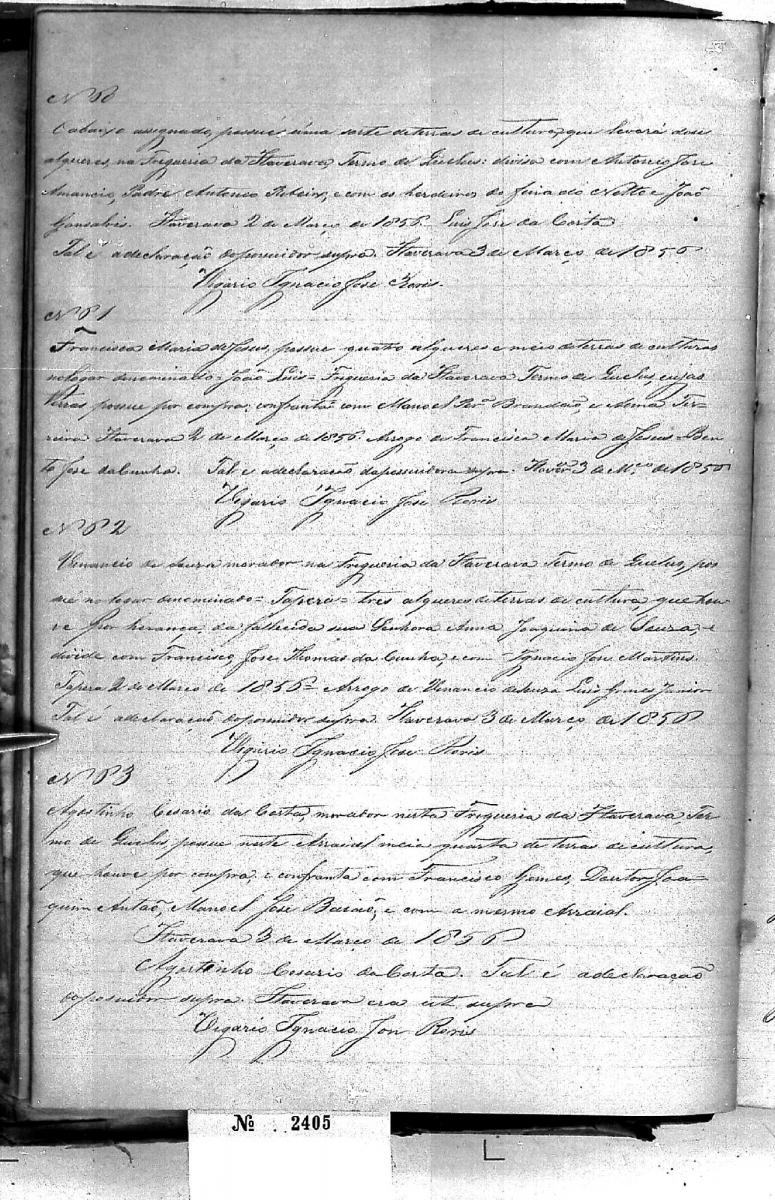 Nº 60
O abaixo assignado, possue uma sorte de terras de cultura, que levará dose
alqueres, na Freguezia da Itaverava, Termo de Queluz: divisa com Antonio Jose
Amancio, Padre Antonio Ribeiro, e com os herdeiros do finado Netto e João
Gonsalves. Itaverava 2 de Março de 1856. Luis Jose da Costa
Tal é a declaração do possuidor supra. Itaverava 3 de Março de 1856
Vigario Ignacio Jose
Nº 61
Francisca Maria de Jesus, possue quatro alqueres e meio de terras de culturas
no logar denominado = João Luis = Freguezia da Itaverava Termo de Queluz, cujas
terras, possue por compra; confronta com Manoel Brandão, e Anna
Itaverava 2 de Março de 1856. Arrogo de Francisca Maria de Jesus = Ben-
to Jose da Cunha. Tal é a declaração da possuidora supra. 3 de Mço de 1856
Vigario Ignacio Jose
Nº 62
Venancio de Souza morador na Freguezia da Itaverava Termo de Queluz, pos
sué no logar denominado = Tapera = tres alqueres de terras de cultura, que hou-
ve por herança, da fallecida sua Senhora Anna Joaquina de Souza, e
divide com Francisco, Jose Thomas da Cunha, e com Ignacio Jose Martins.
Tapera 2 de Março de 1856 = Arrogo de Venancio de Souza Luis Gomes Junior
Tal é a declaração do possuidor supra. Itaverava 3 de Março de 1856
Vigario Ignacio Jose
Nº 63
Agostinho Cesario da Costa, morador nesta Freguezia da Itaverava, Ter-
mo de Queluz, possue neste Arraial meia quarta de terras de cultura,
que houve por compra, e confronta com Francisco Gomes, Doutor Joa-
quim Antão, Manoel Jose, e com o mesmo Arraial.
Itaverava 3 de Março de 1856
Agostinho Cesario da Costa. Tal é a declaração
do possuidor supra. Itaverava era ut supra
Vigario Ignacio Jose
Nº 2405